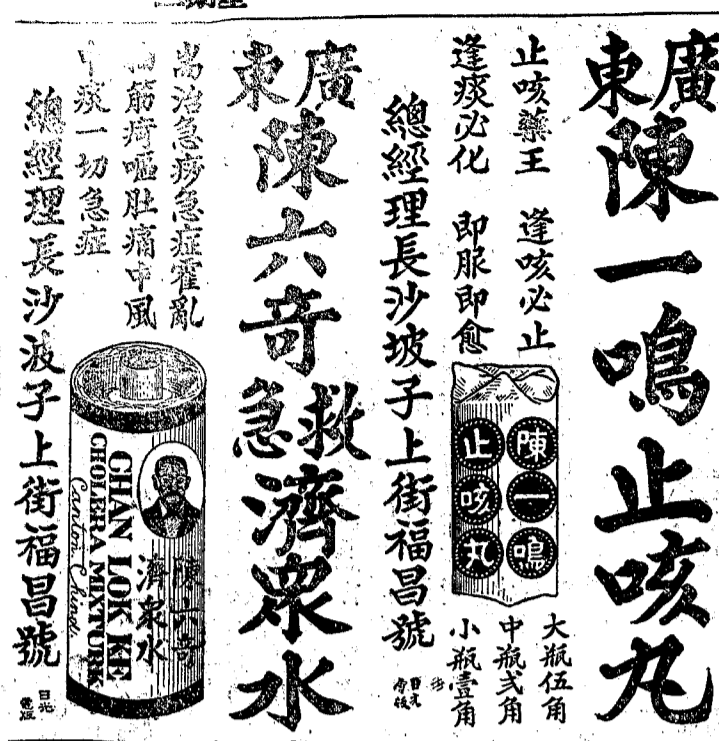 廣東
陳一鳴止咳丸
止咳藥王 逢咳必止
逢痰必化 即服即愈
陳一鳴
止咳丸
大瓶伍角
中瓶弍角
小瓶壹角
總經理長沙坡子上街福昌號
廣東
陳六奇
救急
濟衆水
耑治急痧急症霍亂
筋疴嘔肚痛中風
中痰一切急症
陳六奇
濟衆水
CHAN LOK KE
CHOLERA MIXTURE
Canton China.
總經理長沙波子上街福昌號